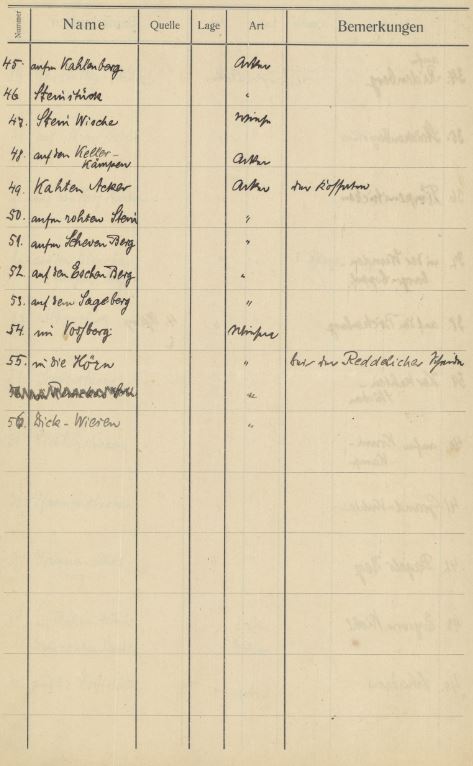 Nummer Name Quelle Lage Art Bemerkungen
45. aufm Kahlenberg Acker
46 Steinstück "
47. Stein Wische Wiese
48. auf den Keller-
Kämpen Acker
49. Kahlen Acker Acker der
50. aufm rohten Stein "
51. aufm Scheven Berg "
52. auf den Eschen Berg "
53. auf dem Sageberg "
54. im Vossberg
55. in die Hörn " bei der Reddelicher Scheide
56. "
56. Dick-Wiesen "